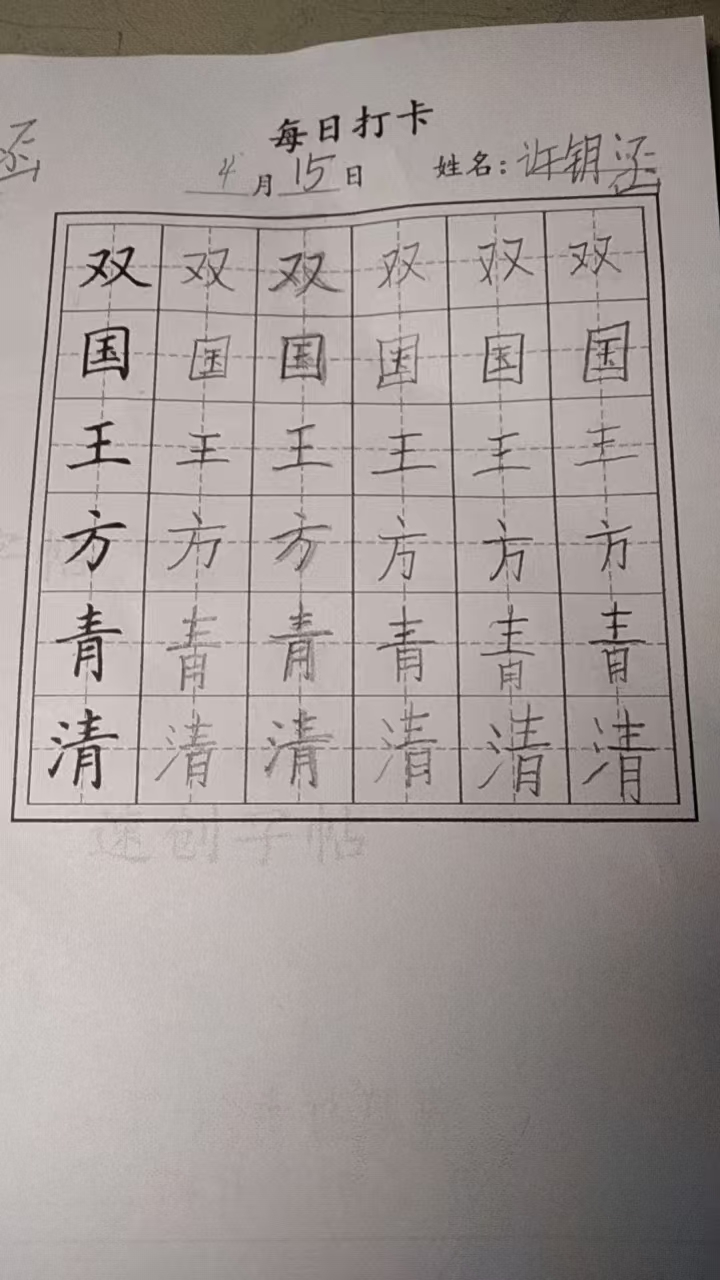 每日打卡
4月15日 姓名：许钥涵
双双双双双双
国国国国国国
王王王王王王
方方方方方方
青青青青青青
清清清清清清
速创字帖